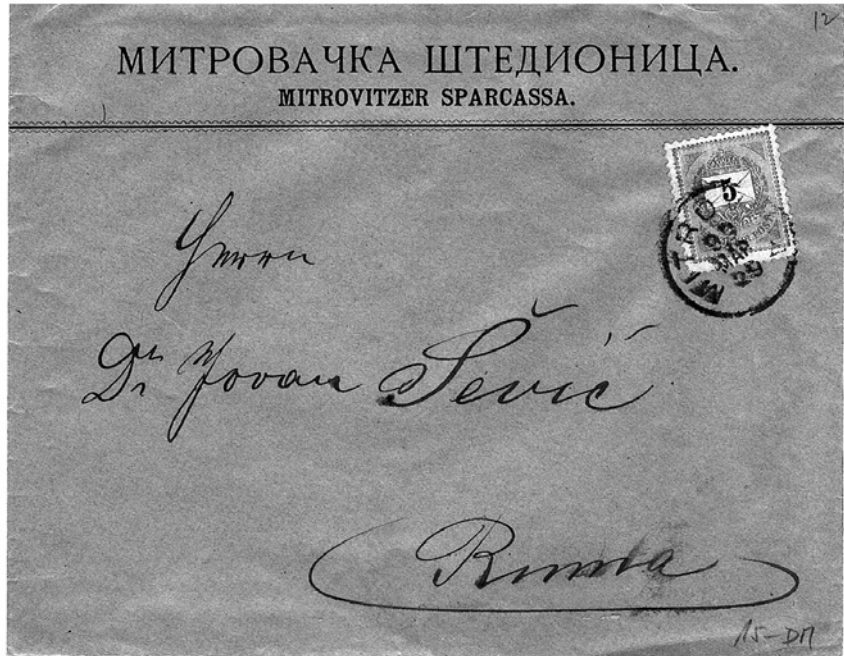 12
МИТРОВАЧКА ШТЕДИОНИЦА.
MITROVITZER SPARCASSA.
5
MITRO
99
MÁR
29
Herrn
Dr Jovan Šević
Ruma
15-DM